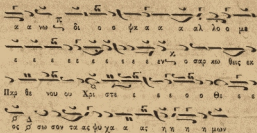 κ α ν ω δ ι ο ο ψ α α α α λ λ ο ο μ α
ε ε ε ε ε ε ε ε εν ο σαρ κω θεις εκ
Παρ θε νου ου Χρι στε ε ε ε ο ο Θε ε
ος σω σον τα ας ψυ χα α ας η η η μων